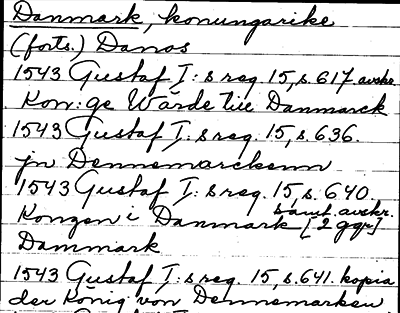 Danmark, konungarike
(forts.) Danos
1543 Gustaf I:s reg. 15, s. 617 avskr.
Kon:ge Wärde till Danmarck
1543 Gustaf I:s reg. 15, s. 636.
jn Dennemarckenn
1543 Gustaf I:s reg. 15, s. 640.
samt. avskr.
Kongen i Danmark [2 ggr]
Dammark
1543 Gustaf I:s reg. 15, s. 641. kopia
der König von Dennemarken